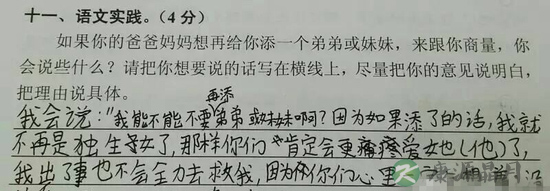 十一、语文实践。(4分)
如果你的爸爸妈妈想再给你添一个弟弟或妹妹,来跟你商量,你
会说些什么?请把你想要说的话写在横线上,尽量把你的意见说明白,
把理由说具体。
再添
我会说:"我能不能不要弟弟或妹妹啊?因为如果添了的话,我就
不再是独生子女了,那样你们肯定会更疼爱她(他)了,
我出了事也不会全力去救我,因为你们心里